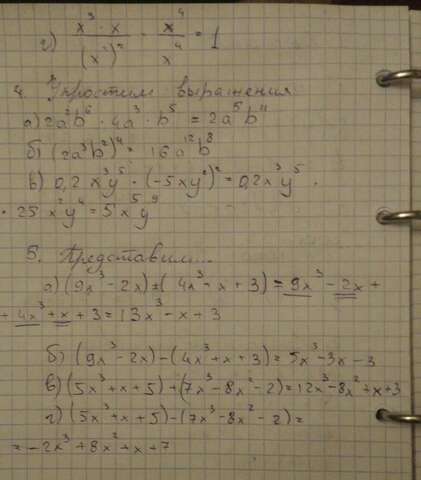 г) (x³ · x)/(x²)² = x⁴/x⁴ = 1
4. Упростим выражения
а) 2a²b⁶ · 4a³ · b⁵ = 2a⁵b¹¹
б) (2a³b²)⁴ = 16a¹²b⁸
в) 0,2x³y⁵ · (-5xy²)² = 0,2x³y⁵ ·
· 25x²y⁴ = 5x⁵y⁹
5. Представим...
а) (9x³ - 2x) + (4x³ + x + 3) = 9x³ - 2x +
+ 4x³ + x + 3 = 13x³ - x + 3
б) (9x³ - 2x) - (4x³ + x + 3) = 5x³ - 3x - 3
в) (5x³ + x + 5) + (7x³ - 8x² - 2) = 12x³ - 8x² + x + 3
г) (5x³ + x + 5) - (7x³ - 8x² - 2) =
= -2x³ + 8x² + x + 7